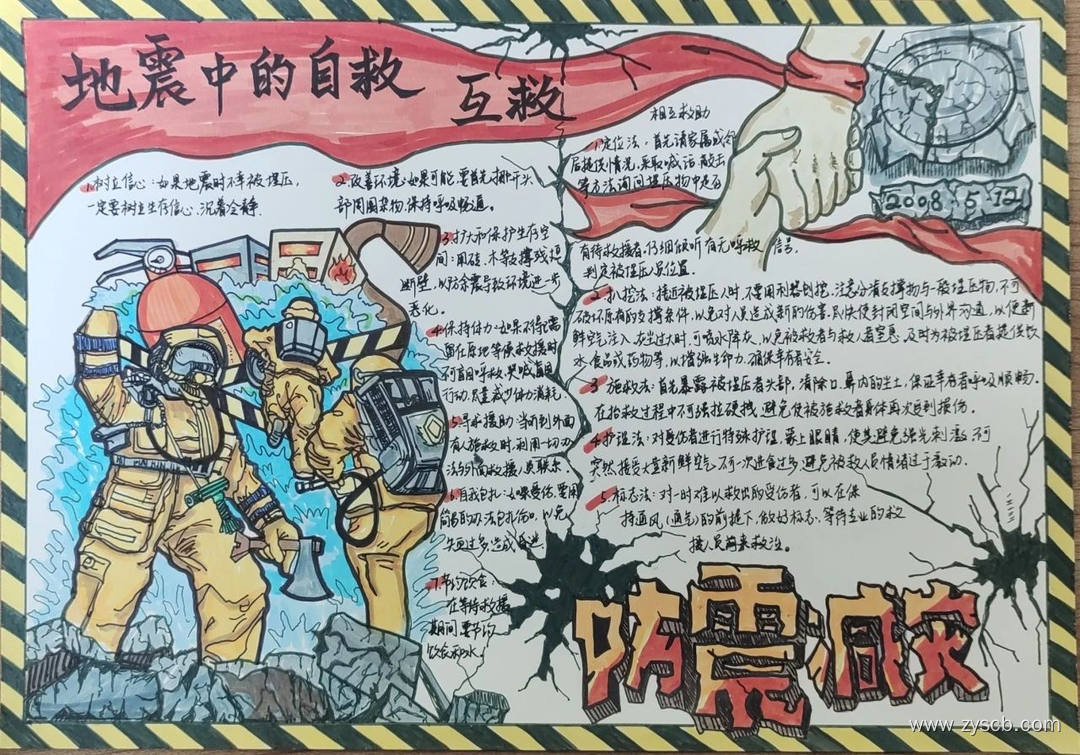 地震中的自救
互救
1.树立信心:如果地震时不幸被埋压,
一定要树立生存信心,沉着冷静.
2.改善环境:如可能,要首先挪开头
部周围杂物,保持呼吸畅通。
3.扩大和保护生存空
间:用砖、木等支撑残垣
断壁,以防余震导致环境进一步
恶化。
4.保持体力:如果不得已需
留在原地等候救援时
不可盲目呼救、哭喊、盲目
行动,尽量减少体力消耗
5.寻求援助:当听到外面
有人施救时,利用一切办
法与外面救援人员联系.
6.自我包扎:如果受伤,要用
简易的办法包扎伤口,以免
失血过多,造成昏迷
7.节约饮食:
在等待救援
期间要节约
饮食和水.
相互救助
1.定位法:首先请家属或邻
居提供情况,采取喊话、敲击
等方法询问埋压物中是否
有待救援者,仔细倾听有无呼救信号,
判定被埋压人员位置.
2.扒挖法:接近被埋压人时,不要用利器刨挖,注意分清支撑物与一般埋压物,不可
破坏原有的支撑条件,以免对人员造成新的伤害.尽快使封闭空间与外界沟通,以便新
鲜空气注入,灰尘过大时,可喷水降灰,以免被救者与救人者窒息,及时为被埋压者提供饮
水、食品或药物等,以增强生命力,确保幸存者安全.
3.施救法:首先暴露被埋压者头部,清除口、鼻内的尘土,保证幸存者呼吸顺畅.
在抢救过程中不可强拉硬拽,避免使被施救者身体再次受到损伤.
4.护理法:对受伤者进行特殊护理,蒙上眼睛,使其避免强光刺激,不可
突然接受大量新鲜空气,不可一次进食过多,避免被救人员情绪过于激动.
5.标志法:对一时难以救出的受伤者,可以在保
持通风(通气)的前提下,做好标志,等待专业的救
援人员前来救治。
2008.5.12
防震减灾
www.zyscb.com